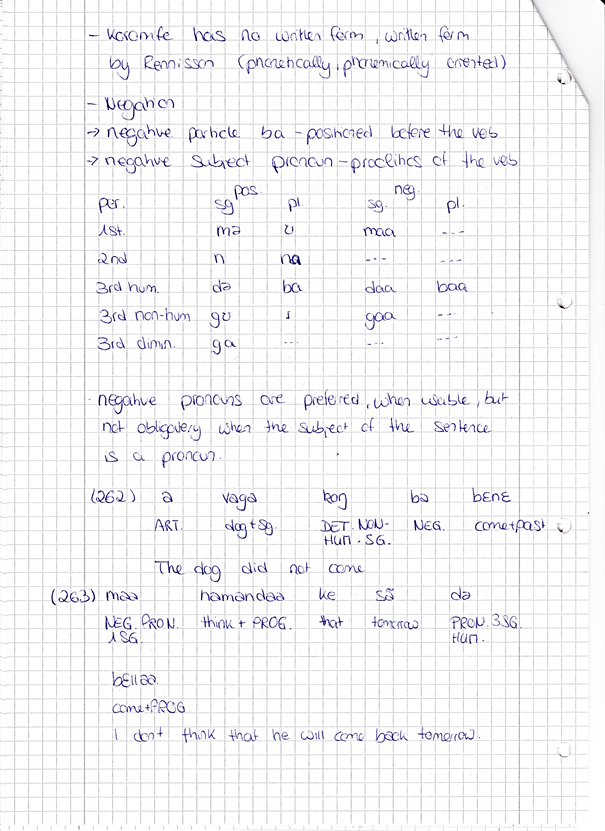 - Koromfe has no written form, written form
by Rennison (phonetically, phonemically oriented)
- Negation
→ negative particle ba - positioned before the verb
→ negative subject pronoun - proclitics of the verb
pos. neg.
per. sg pl. sg. pl.
1st. mə ʊ maa ---
2nd n na --- ---
3rd hum. də ba daa baa
3rd non-hum gʊ ɪ gaa ---
3rd dimin. ga --- --- ---
- negative pronouns are prefered, when usable, but
not obligatory when the subject of the sentence
is a pronoun.
(262) a vaga koŋ ba bɛnɛ
ART. dog+sg. DET. NON- NEG. come+past
HUM. SG.
The dog did not come
(263) maa hamandaa ke sã də
NEG. PRON. think + PROG. that tomorrow PRON. 3SG.
1SG. HUM.
bɛllaa
come+PROG
I don't think that he will come back tomorrow.